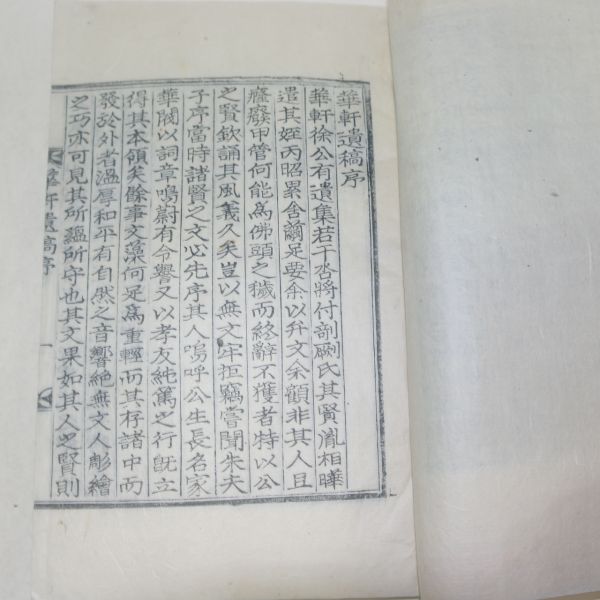 華軒遺稿序
華軒徐公有遺集若干沓將付剞劂氏其賢胤相曄
遣其姪丙昭累舍繭足要余以弁文余顧非其人且
癃廢甲管何能爲佛頭之穢而終辭不獲者特以公
之賢欽誦其風義久矣豈以無文牢拒竊嘗聞朱夫
子序當時諸賢之文必先序其人嗚呼公生長名家
華閥以詞章鳴蔚有令譽又以孝友純篤之行旣立
得其本領矣餘事文藻何足爲重輕而其存諸中而
發於外者溫厚和平有自然之音響絶無文人彫繪
之巧亦可見其所蘊所守也其文果如其人之賢則
華軒遺稿序
一